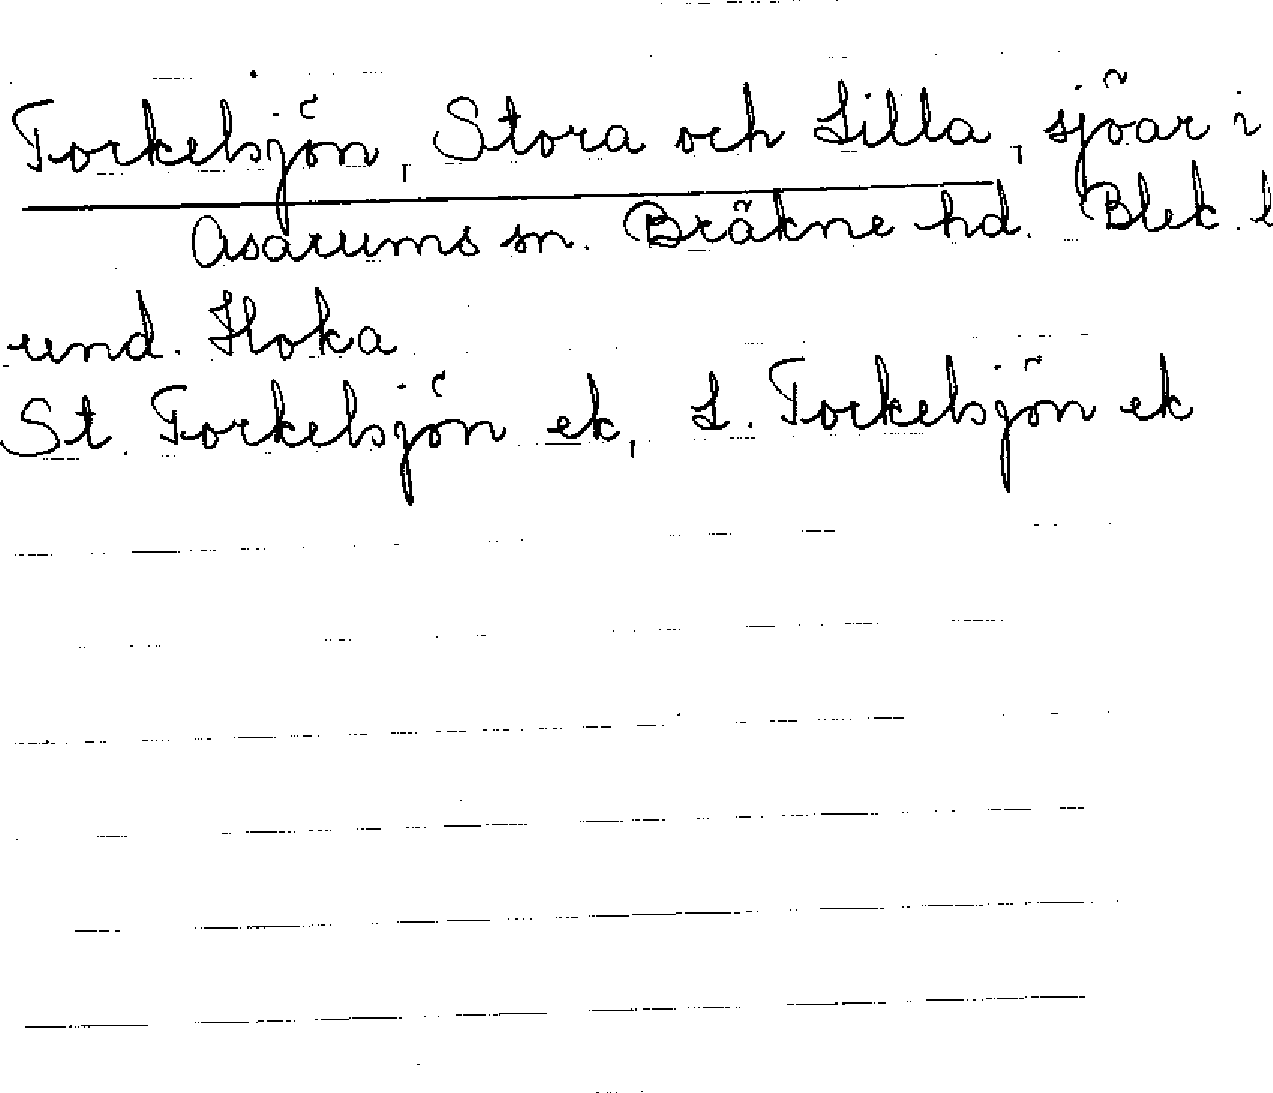 Torkelsjön, Stora och Lilla, sjöar i
Asarums sn. Bräkne hd. Blek. l
und. Hoka
St. Torkelsjön ek, L. Torkelsjön ek